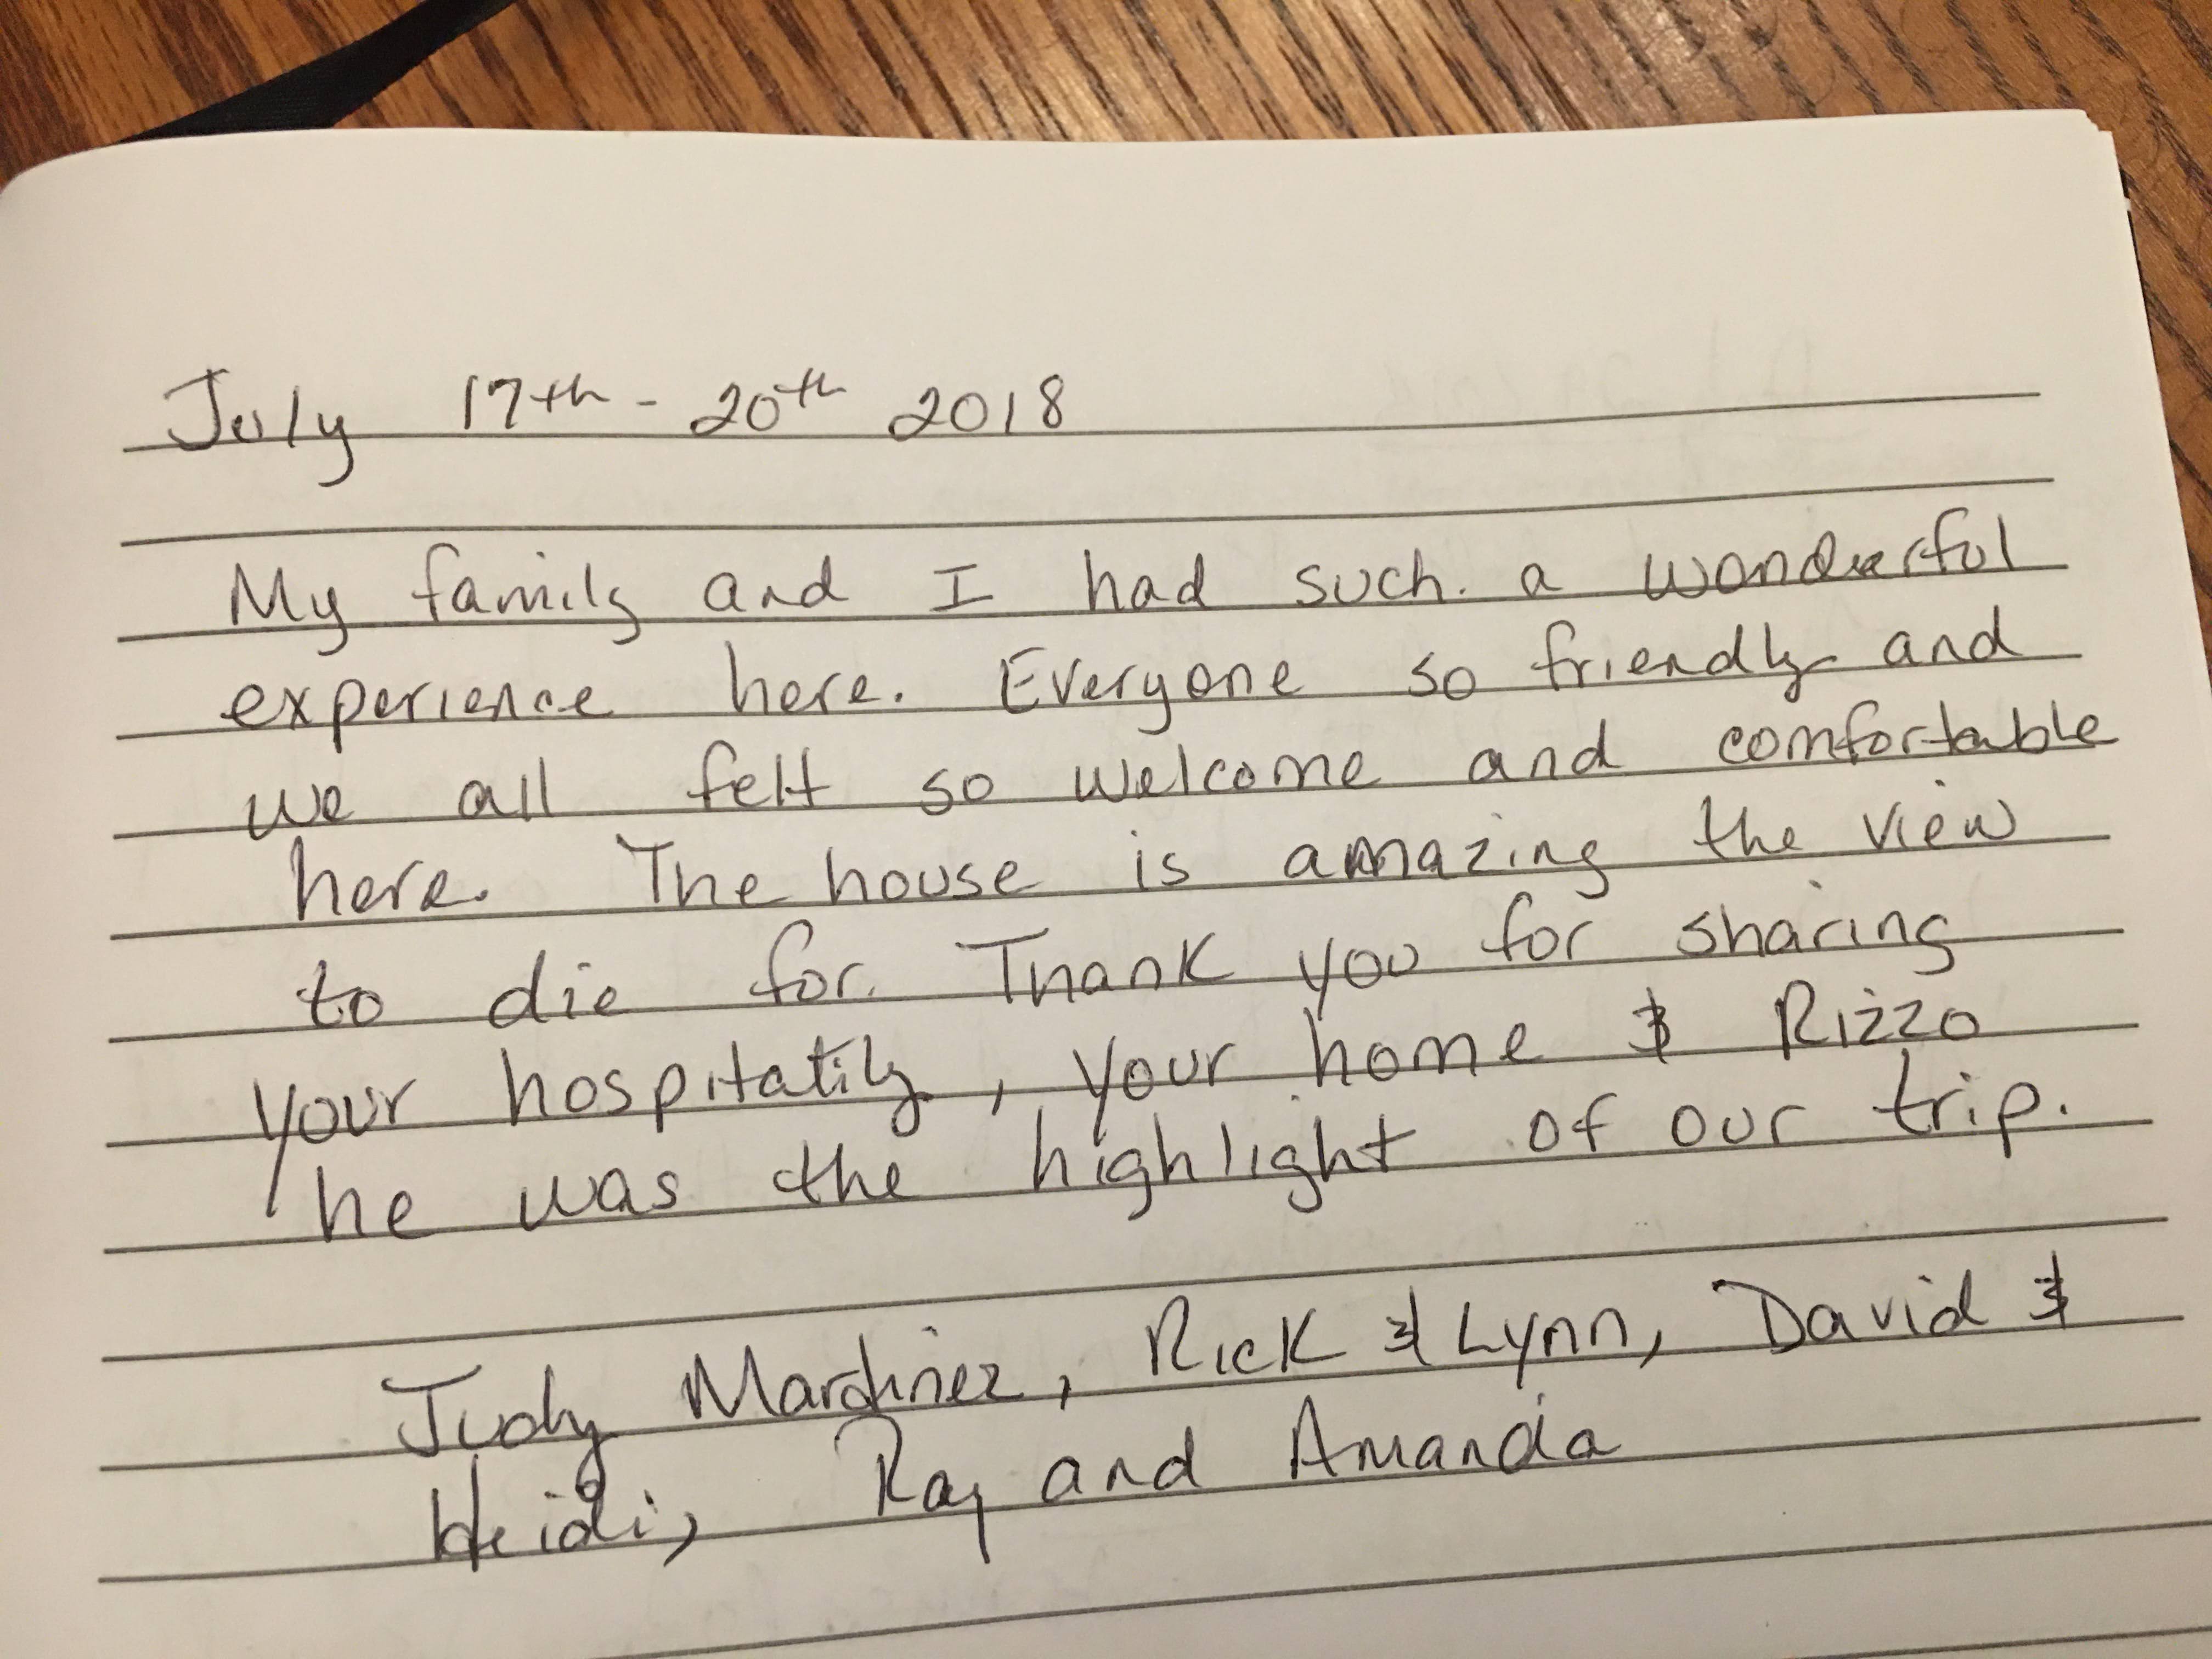 July 17th - 20th 2018
My family and I had such a wonderful
experience here. Everyone so friendly and
we all felt so welcome and comfortable
here. The house is amazing the view
to die for. Thank you for sharing
your hospitatily, your home & Rizzo
he was the highlight of our trip.
Judy Martinez, Rick & Lynn, David &
Heidi, Ray and Amanda